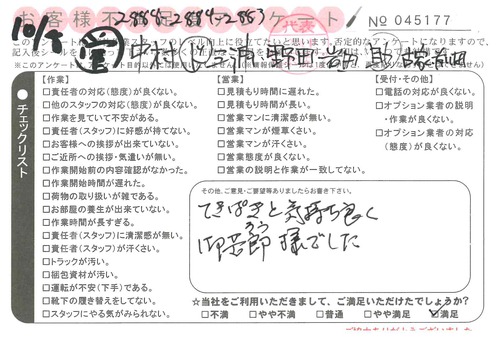 2884-2884-2883
お客様不 ケート!
代表
№ 045177
10/8
中村
野田
●チェックリスト
【作業】
□責任者の対応(態度)が良くない。
□他のスタッフの対応(態度)が良くない。
□作業を見ていて不安がある。
□責任者(スタッフ)に好感が持てない。
□お客様への挨拶が出来ていない。
□ご近所への挨拶・気遣いが無い。
□作業開始前の内容確認がなかった。
□作業開始時間が遅れた。
□荷物の取り扱いが雑である。
□お部屋の養生が出来ていない。
□作業時間が長すぎる。
□責任者(スタッフ)に清潔感が無い。
□責任者(スタッフ)が汗くさい。
□トラックが汚い。
□梱包資材が汚い。
□運転が不安(下手)である。
□靴下の履き替えをしてない。
□スタッフにやる気がみられない。
【営業】
□見積もり時間に遅れた。
□見積もり時間が長い。
□営業マンに清潔感が無い。
□営業マンが煙草くさい。
□営業マンが汗くさい。
□営業態度が良くない。
□営業の説明と作業が一致してない。
【受付・その他】
□電話の対応が良くない。
□オプション業者の説明
・作業が良くない。
□オプション業者の対応
(態度)が良くない。
その他、ご意見・ご要望等ありましたらお書き下さい。
てきぱきと気持ち良く
御苦労様でした
☆当社をご利用いただきまして、ご満足いただけたでしょうか?
□不満 □やや不満 □普通 □やや満足 ☑満足
ご協力ありがとうございました